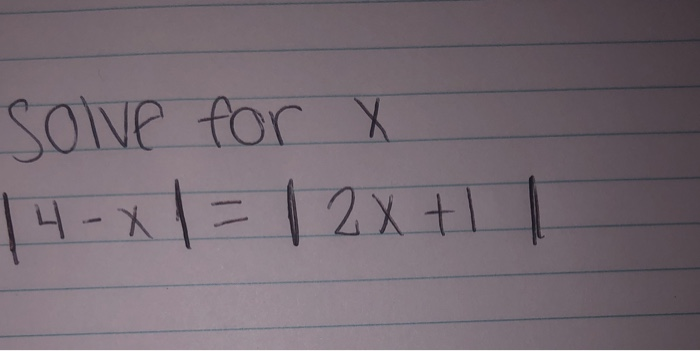 Solve for x
|4-x| = |2x+1|